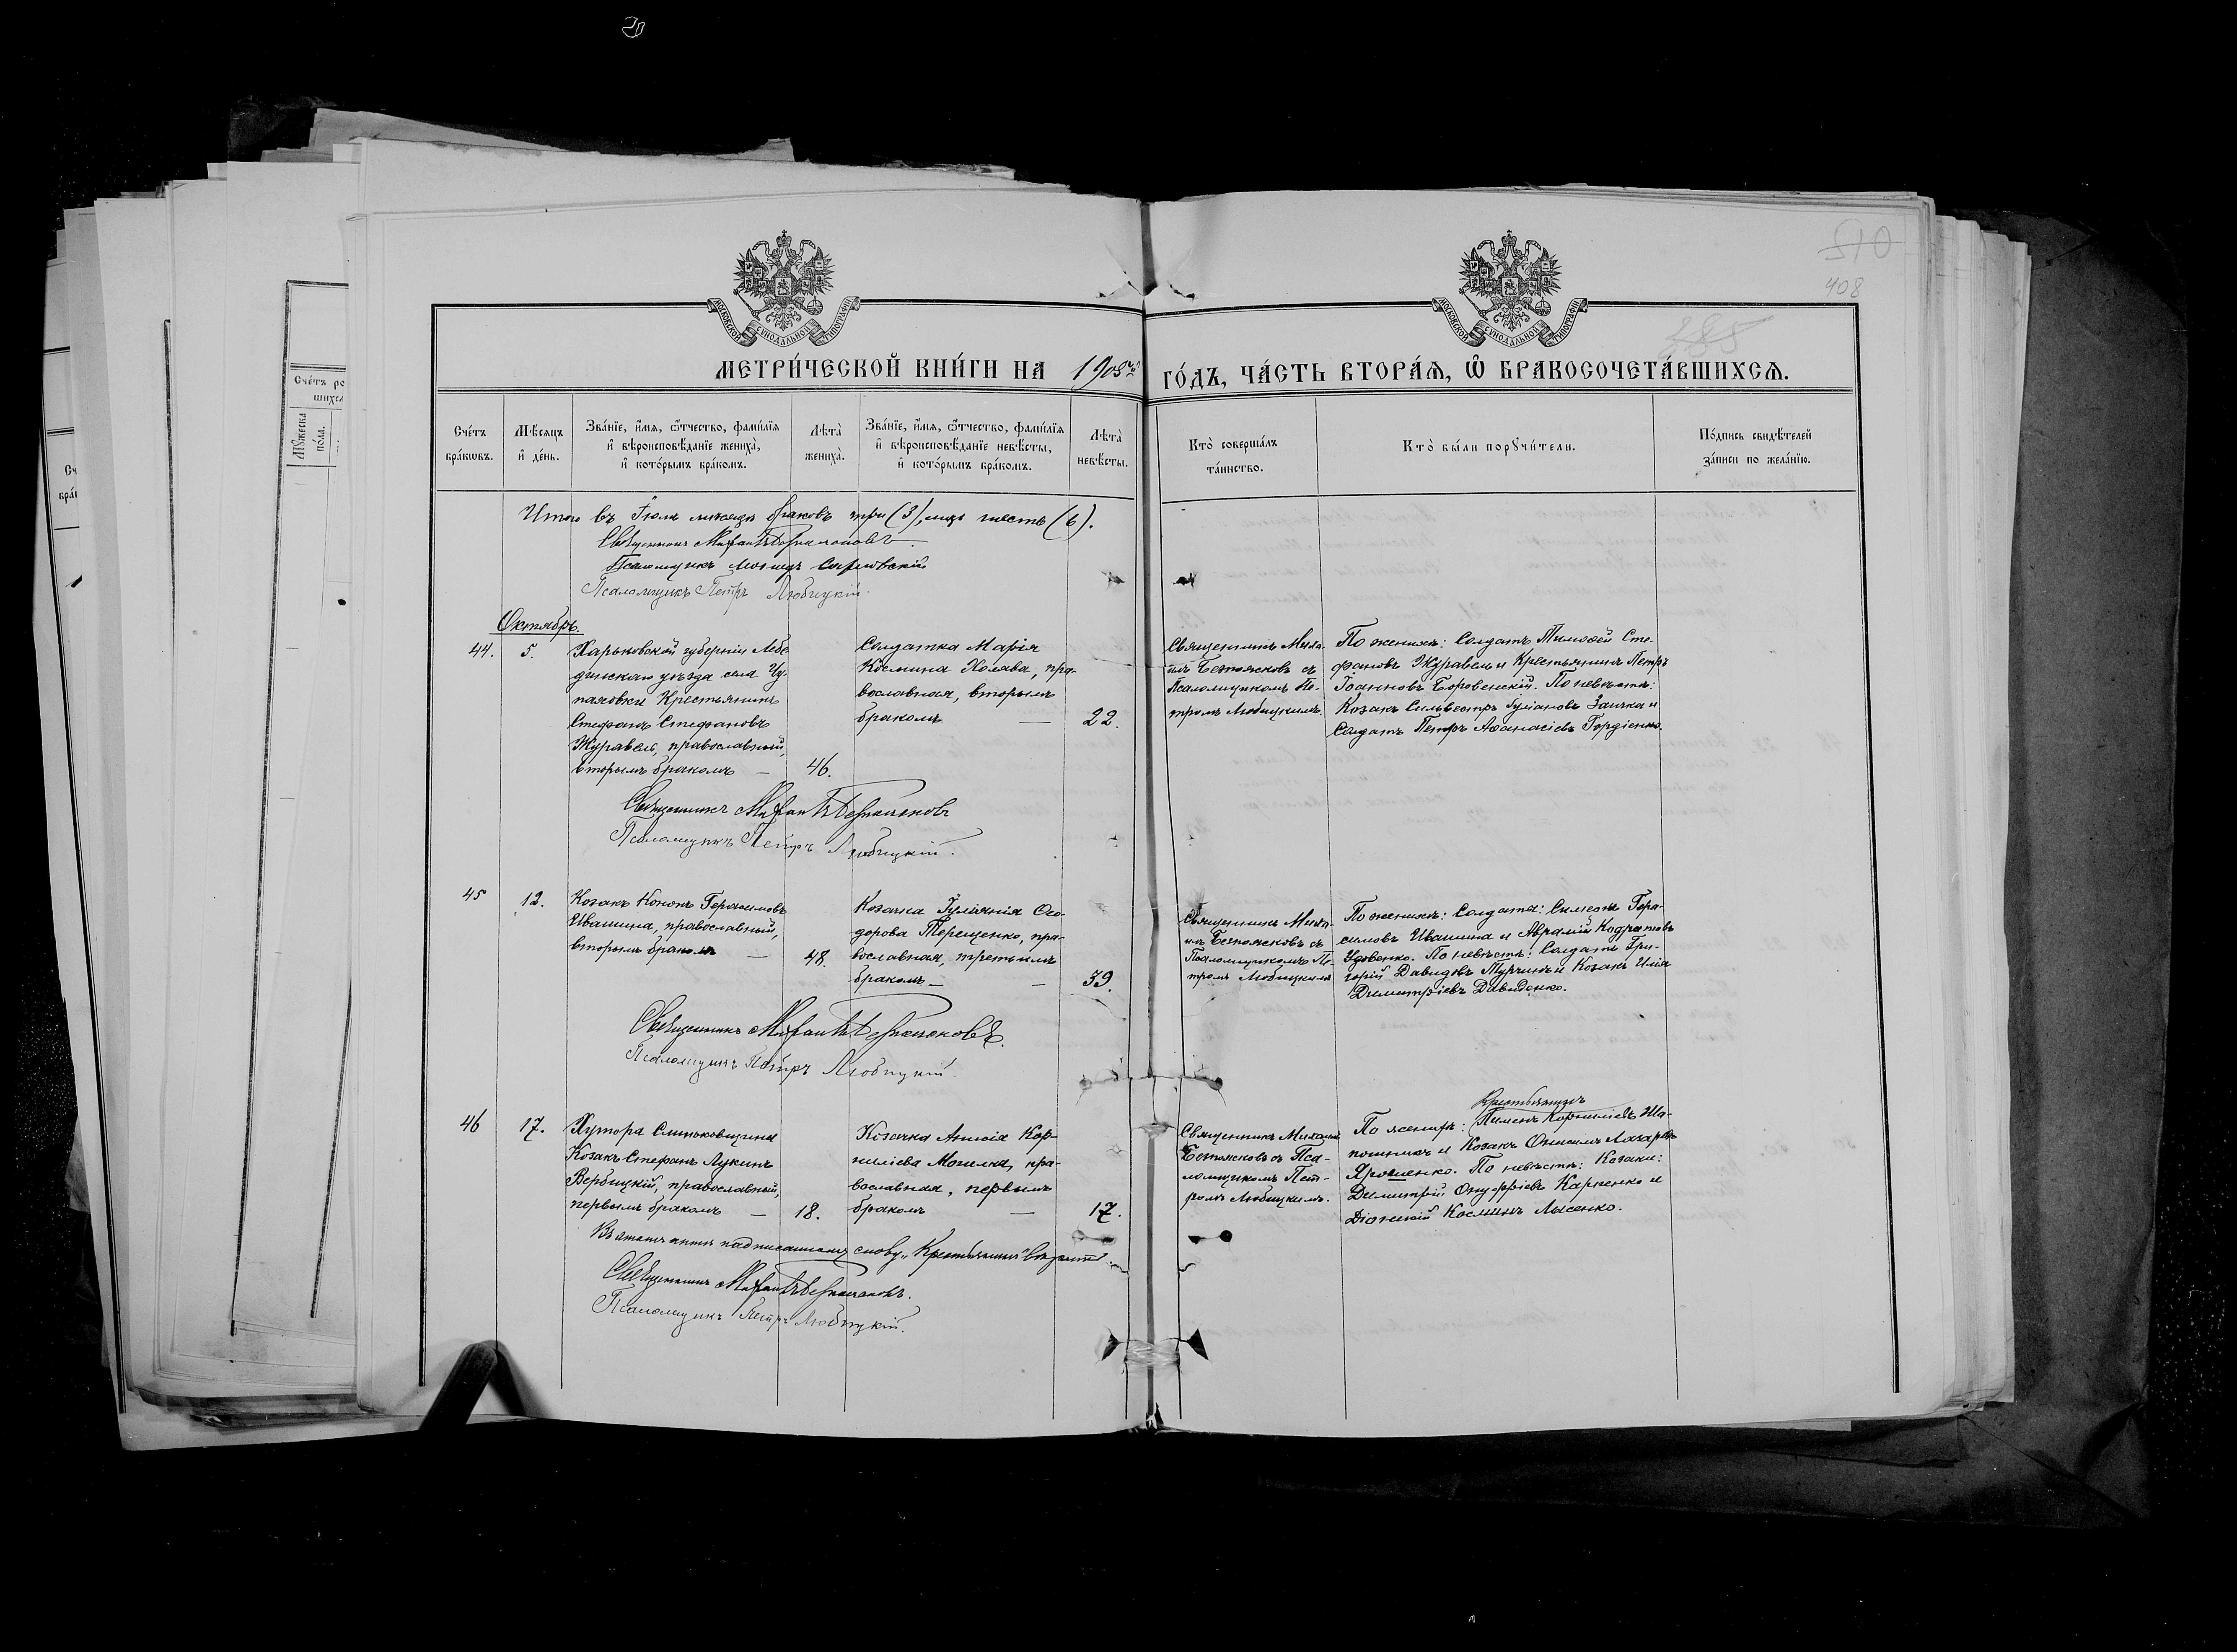 510
408
385
МОСКОВСКОЙ СѴНОДАЛЬНОЙ ТИПОГРАФІИ
МОСКОВСКОЙ СѴНОДАЛЬНОЙ ТИПОГРАФІИ
МЕТРИ́ЧЕСКОЙ КНИ́ГИ НА 1908й ГО́ДЪ, ЧА́СТЬ ВТОРА́Ѧ, Ѡ҆ БРАКОСОЧЕТА́ВШИХСѦ.
Сче́тъ
бра́кѡвъ.
Мѣ́сѧцъ
и҆ де́нь.
Зва́нїе, и҆́мѧ, ѻ҆́тчество, фами́лїѧ
и҆ вѣроисповѣ́данїе жениха̀,
и҆ кото́рымъ бра́комъ.
Лѣта̀
жениха̀.
Зва́нїе, и҆́мѧ, ѻ҆́тчество, фами́лїѧ
и҆ вѣроисповѣ́данїе невѣ́сты,
и҆ кото́рымъ бра́комъ.
Лѣта̀
невѣ́сты.
Кто̀ соверша́лъ
та́инство.
Кто̀ бы́ли порꙋчи́тели.
По́дпись свидѣ́телей
за́писи по жела́нїю.
Сче́тъ ро
шихсѧ
Мꙋ́жеска
по́ла.
Итого въ Іюлѣ мѣсяцѣ браковъ три (3), лицъ шесть (6).
Священникъ Михаилъ
Псаломщикъ
Псаломщикъ Петръ Любицкій.
Октябрь.
44.
5.
Харьковской губерніи Лебе-
динскаго уѣзда села Чу-
паховки Крестьянинъ
Стефанъ Стефановъ
Журавель, православный,
вторымъ бракомъ —
46.
Солдатка Марія
Космина Холява, пра-
вославная, вторымъ
бракомъ —
22.
Священникъ Миха-
илъ Безпояскъ съ
Псаломщикомъ Пе-
тромъ Любицкимъ.
По женихѣ: Солдатъ Тимоѳей Сте-
фановъ Журавель и Крестьянинъ Петръ
Іоанновъ Боровенскій. По невѣстѣ:
Козакъ Сильвестръ Іуліановъ Заичка и
Солдатъ Петръ Аѳанасіевъ Гордіенко.
Священникъ Михаилъ
Псаломщикъ Петръ Любицкій.
45
12.
Козакъ Кононъ Герасимовъ
Ивашина, православный,
вторымъ бракомъ —
48.
Козачка Іуліанія Ѳео-
дорова Терещенко, пра-
вославная, третьимъ
бракомъ —
39.
Священникъ Миха-
илъ съ
Псаломщикомъ Пе-
тромъ Любицкимъ
По женихѣ: Солдаты: Симеонъ Гера-
симовъ Ивашина и Аврамій Кодратовъ
Удовенко. По невѣстѣ: Солдатъ Гри-
горій Давидовъ Турчинъ и Козакъ Илія
Димитріевъ Давиденко.
Священникъ Михаилъ
Псаломщикъ Петръ Любицкій
46
17.
Хутора Слиньковщины
Козакъ Стефанъ Лукинъ
Вербицкій, православный,
первымъ бракомъ —
18.
Козачка Анисія Кор-
ниліева Могилка, пра-
вославная, первымъ
бракомъ —
17.
Священникъ Михаилъ
съ Пса-
ломщикомъ Пет-
ромъ Любицкимъ.
Крестьянинъ
По женихѣ: Пименъ Корниліевъ Ша-
пошникъ и Козакъ Онисимъ Лазаревъ
Ярошенко. По невѣстѣ: Козаки:
Димитрій Онуфріевъ Карпенко и
Діонисій Косминъ Лысенко.
Въ этомъ актѣ надписанному слову „Крестьянинъ" вѣрить.
Священникъ Михаилъ
Псаломщикъ Петръ Любицкій.